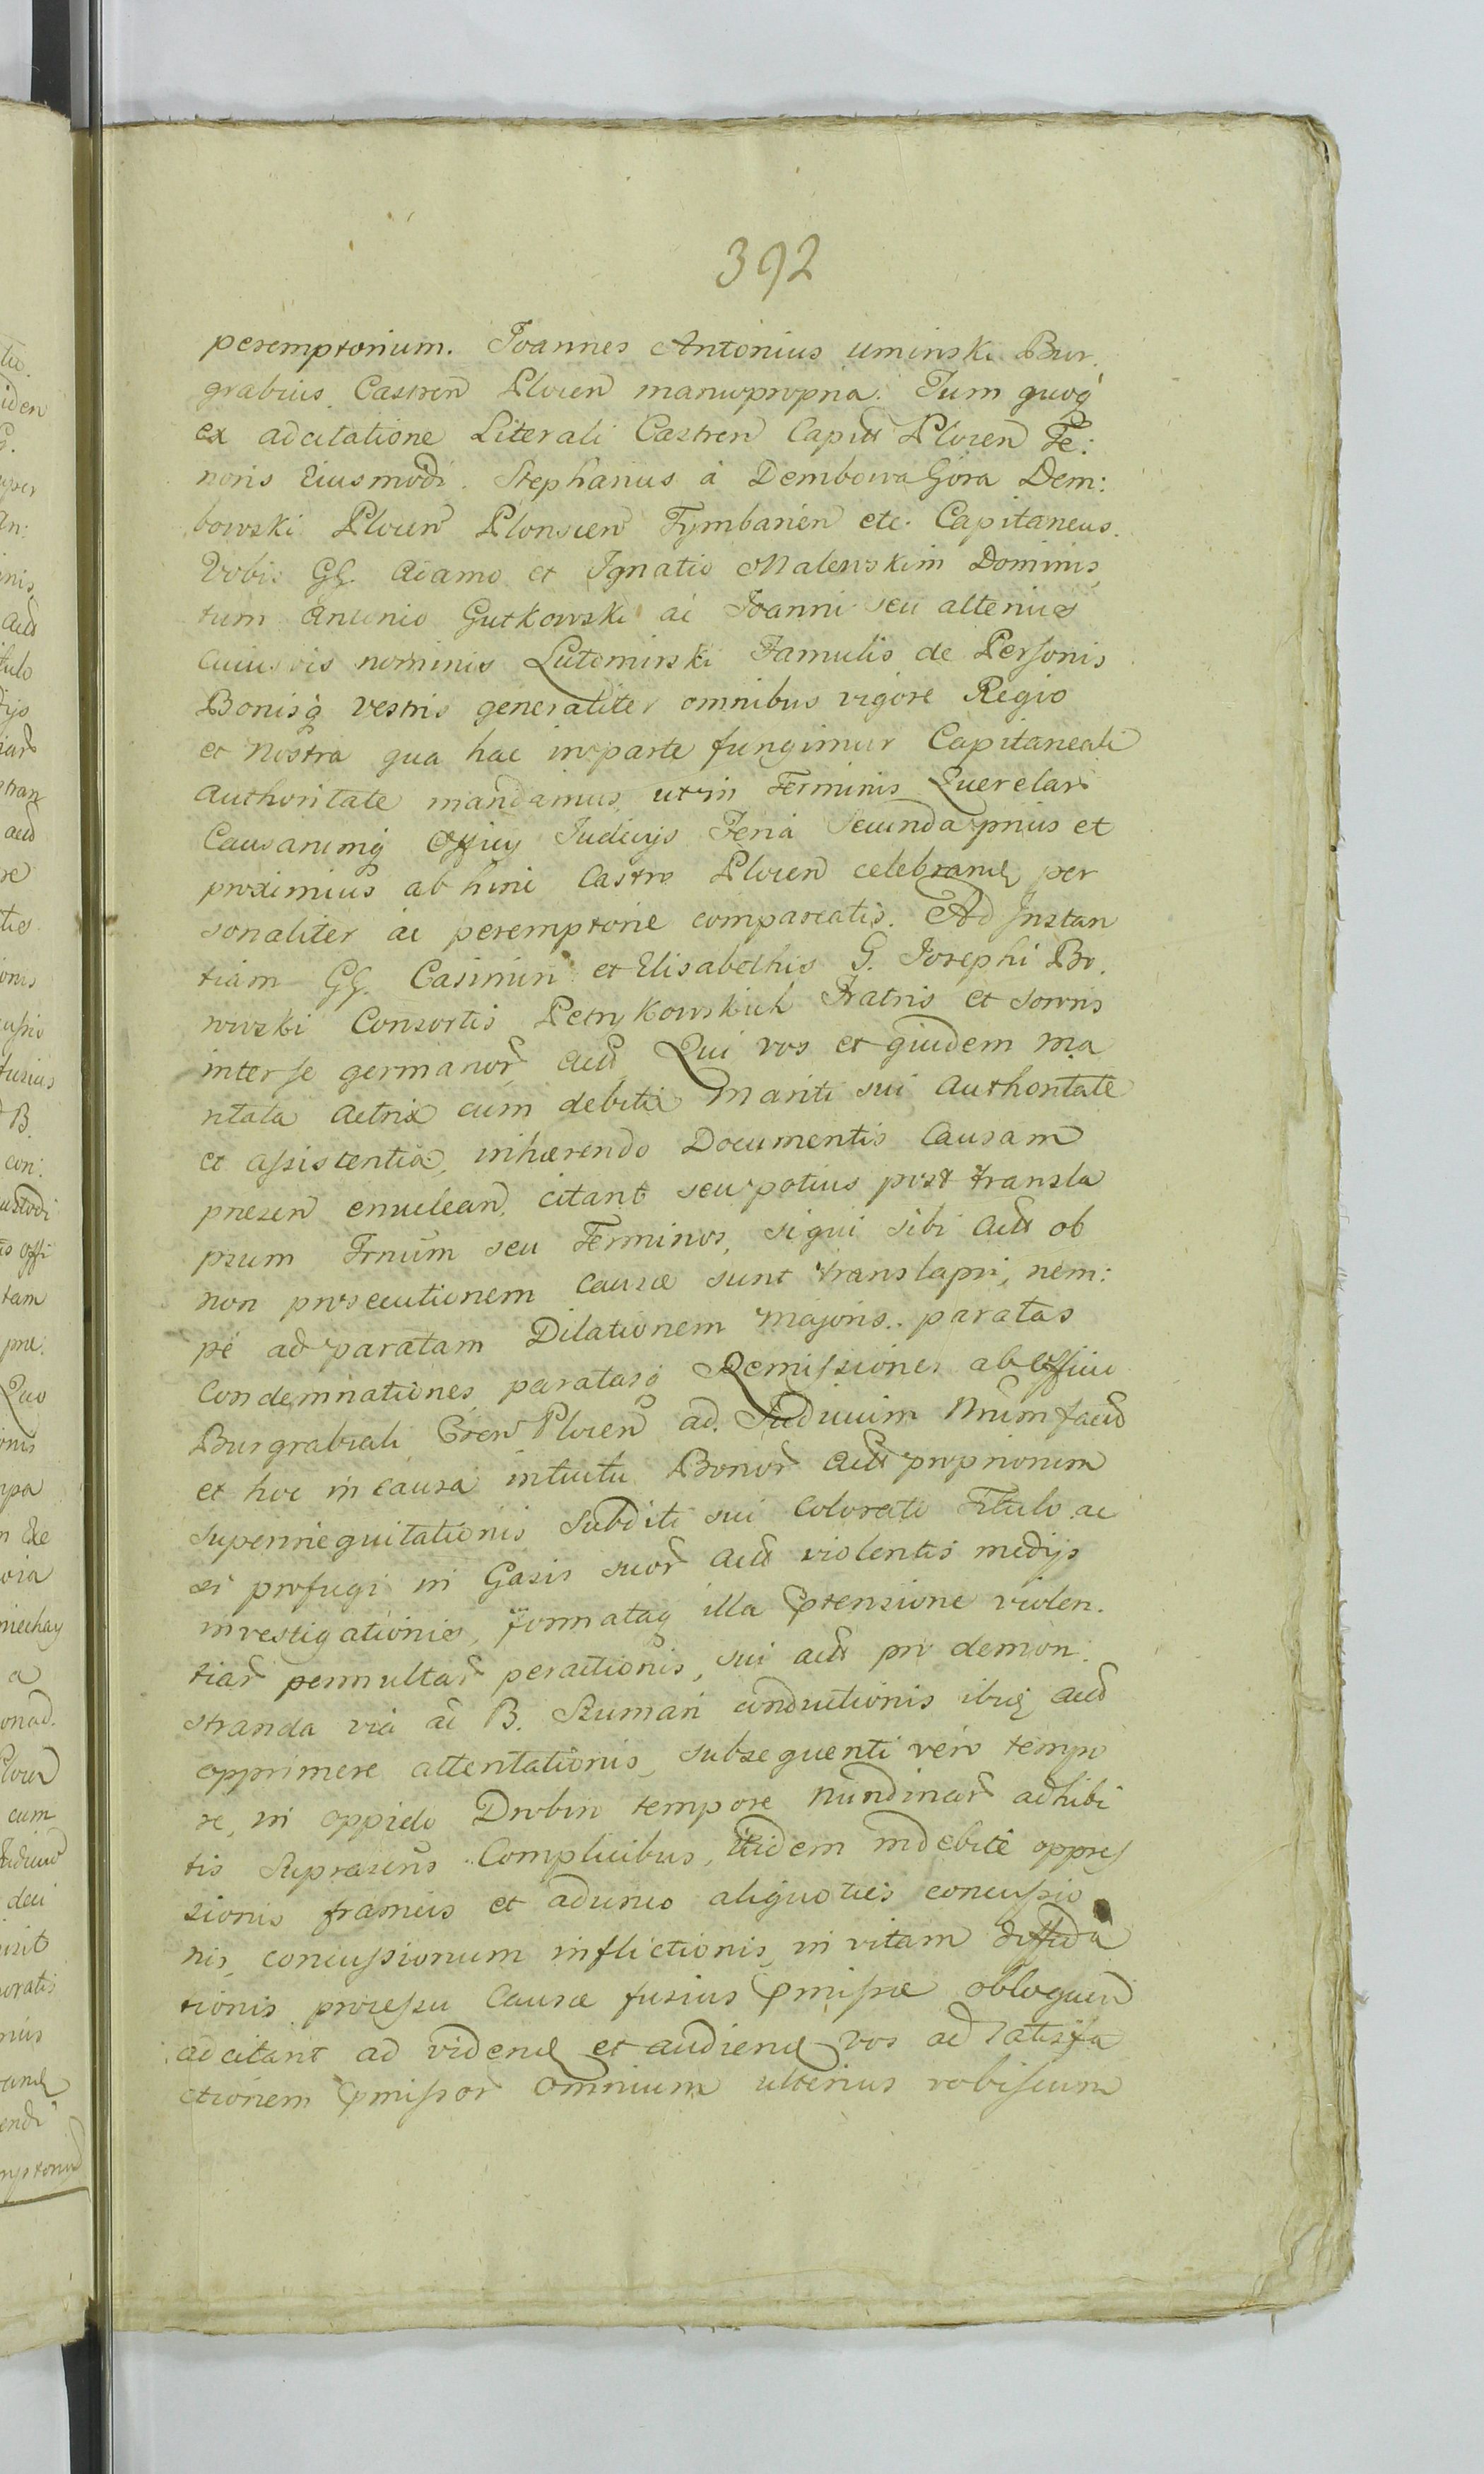 392
peremptorium. Joannes Antonius Uminski Bur.
grabius Castren Plocen manupropria. Tum quoq
ex adcitatione Literali Castren Capit Plocen Te:
noris Eiusmodi. Stephanus à Dembowa Góra Dem:
bowski Plocen Plonscen Tymbarien etc. Capitaneus.
Vobis GG. Adamo et Ignatio Malewskim Dominis,
tum Antonio Gutkowski ac Joanni seu alterius
cuiusvis nominis Lutomirski Famulis de Personis
Bonisq vestris generaliter omnibus vigore Regio
et Nostra qua hac in parte fungimur Capitaneali
Authoritate mandamus, ut in Terminis Querelar
Causarumq Officij Judicijs Feria Secunda prius et
proximius ab hinc Castro Plocen celebrand per
sonaliter ac peremptorie compareatis. Ad Instan
tiam GG. Casimiri et Elisabethis G. Josephi Bo.
rowski Consortis Petrykowskich Fratris et Sororis
inter se germanor Act Qui vos et quidem ma
ritata Actrix cum debita Mariti sui Authoritate
et assistentia, inhærendo Documentis Causam
presen enuclean, citant seu potius post transla
psum Trnum seu Terminos, siqui sibi Act ob
non prosecutionem Causæ sunt translapsi, nem:
pe ad paratam Dilationem majoris. paratas
Condemnationes paratasq Remissiones ab Officio
Burgrabiali Cren Plocen ad Judicium Nrum fact
et hoc in causa intuitu Bonor Act propriorum
superinequitationis Subditi sui colorato Titulo ac
si profugi in Gasis suor Act violentis medijs
investigationis, formataq illa prensione violen.
tiar permultar peractionis, sui act pro demon.
stranda via ac B. Szuman conductionis ibiq act
opprimere attentationis, subsequenti vero tempo
re, in oppido Drobin tempore Nundinar adhibi
tis Suprascris Complicibus, itidem indebite oppres
sionis frameis et adunco aliquoties concussio
nis, concussionum inflictionis, in vitam diffida
tionis processu Causæ fusius pmissæ obloquen
adcitant ad videnđ et audienđ vos ad Satisfa
ctionem pmissor omnium ulterius vobiscum